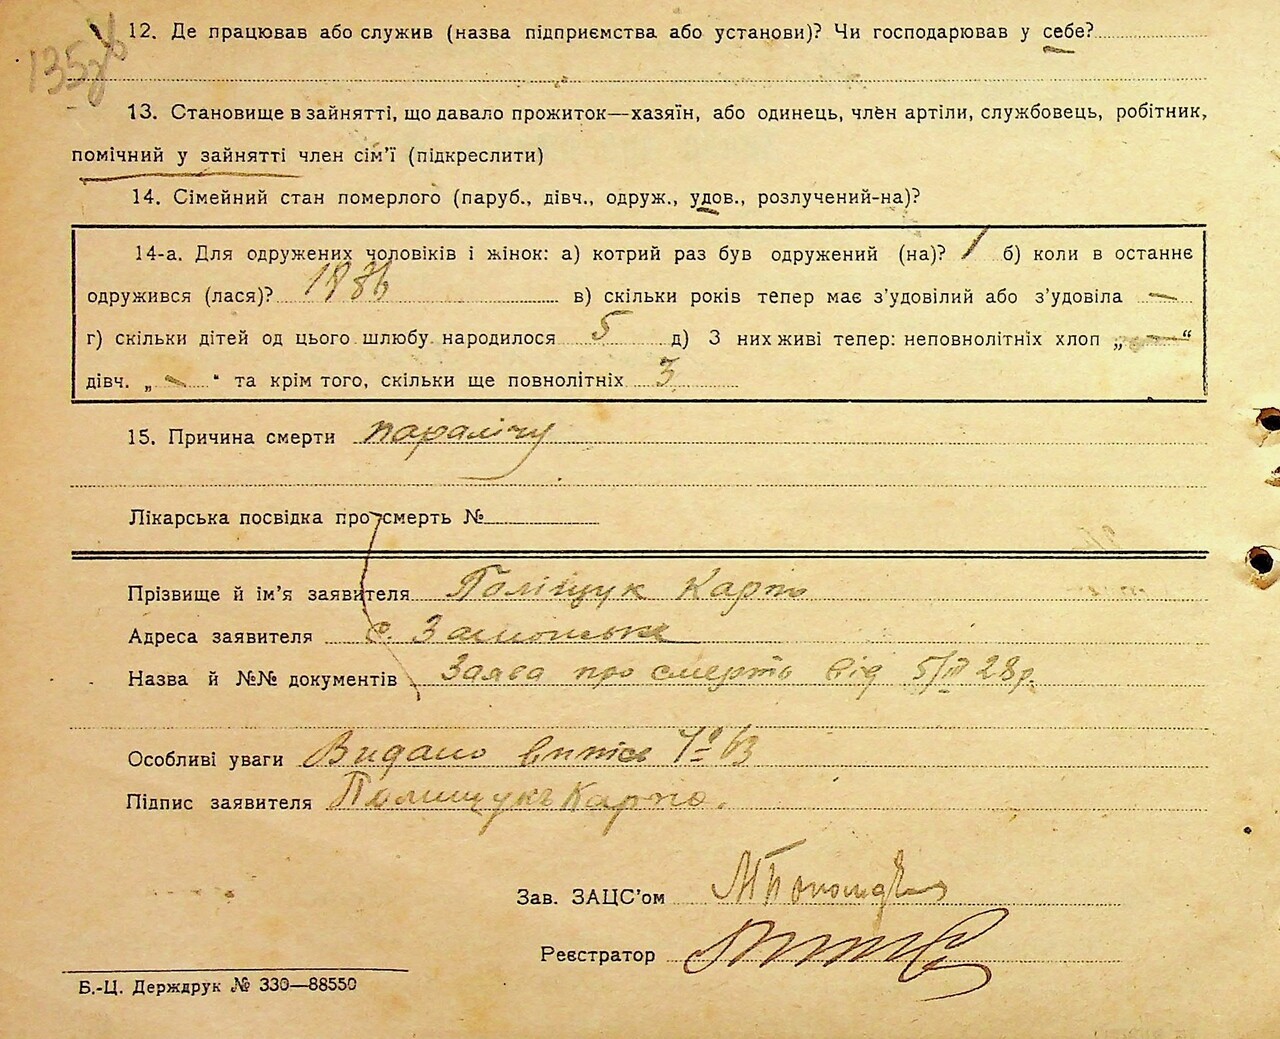 135зв
12. Де працював або служив (назва підприємства або установи)? Чи господарював у себе?
13. Становище в зайнятті, що давало прожиток—хазяїн, або одинець, член артіли, службовець, робітник,
помічний у зайнятті член сім'ї (підкреслити)
14. Сімейний стан померлого (паруб., дівч., одруж., удов., розлучений-на)?
14-а. Для одружених чоловіків і жінок: а) котрий раз був одружений (на)? 1 б) коли в останнє
одружився (лася)? 1886 в) скільки років тепер має з'удовілий або з'удовіла —
г) скільки дітей од цього шлюбу народилося 5 д) З них живі тепер: неповнолітніх хлоп „—“
дівч. „—“ та крім того, скільки ще повнолітніх 3
15. Причина смерти паралічу
Лікарська посвідка про смерть №
Прізвище й ім'я заявителя Поліщук Карпо
Адреса заявителя с.
Назва й №№ документів Заява про смерть від 5/III 28р.
Особливі уваги Видано витяг № 63
Підпис заявителя Полищукъ Карпо.
Зав. ЗАЦС'ом
Реєстратор
Б.-Ц. Держдрук № 330—88550